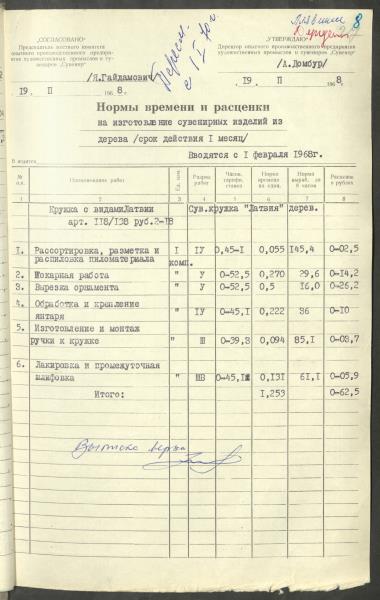 „СОГЛАСОВАНО"
Председатель местного комитета
опытного производственного предприя-
тия художественных промыслов и су-
вениров „Сувенир"
/Я.Гайдамович/
19 II 1968 г.
„УТВЕРЖДАЮ"
Директор опытного производственного предприятия
художественных промыслов и сувениров „Сувенир"
/А.Домбур/
19 II 1968 г.
8
Пересм.
с 1/I 70 г.
Нормы времени и расценки
на изготовление сувенирных изделий из
дерева /срок действия I месяц/
Вводятся с I февраля 1968г.
№ п.п. Наименование работ Ед. изм. Разряд работ Часов. тарифн. ставка Норма времени на един. Норма выраб. за 8 часов Расценка в рублях
1 2 3 4 5 6 7 8
Кружка с видами Латвии Сув.кружка "Латвия" дерев.
арт. 118/138 руб.2-18
1. Рассортировка, разметка и I IУ 0,45-I 0,055 145,4 0-02,5
распиловка пиломатериала комп.
2. Токарная работа " У 0-52,5 0,270 29,6 0-14,2
3. Вырезка орнамента " У 0-52,5 0,5 16,0 0-26,2
4. Обработка и крепление
янтаря " IУ 0-45,1 0,222 36 0-10
5. Изготовление и монтаж
ручки к кружке " Ш 0-39,3 0,094 85,1 0-03,7
6. Лакировка и промежуточная
шлифовка " ШВ 0-45,1 0,131 61,1 0-05,9
Итого: 1,253 0-62,5
Выписка верна